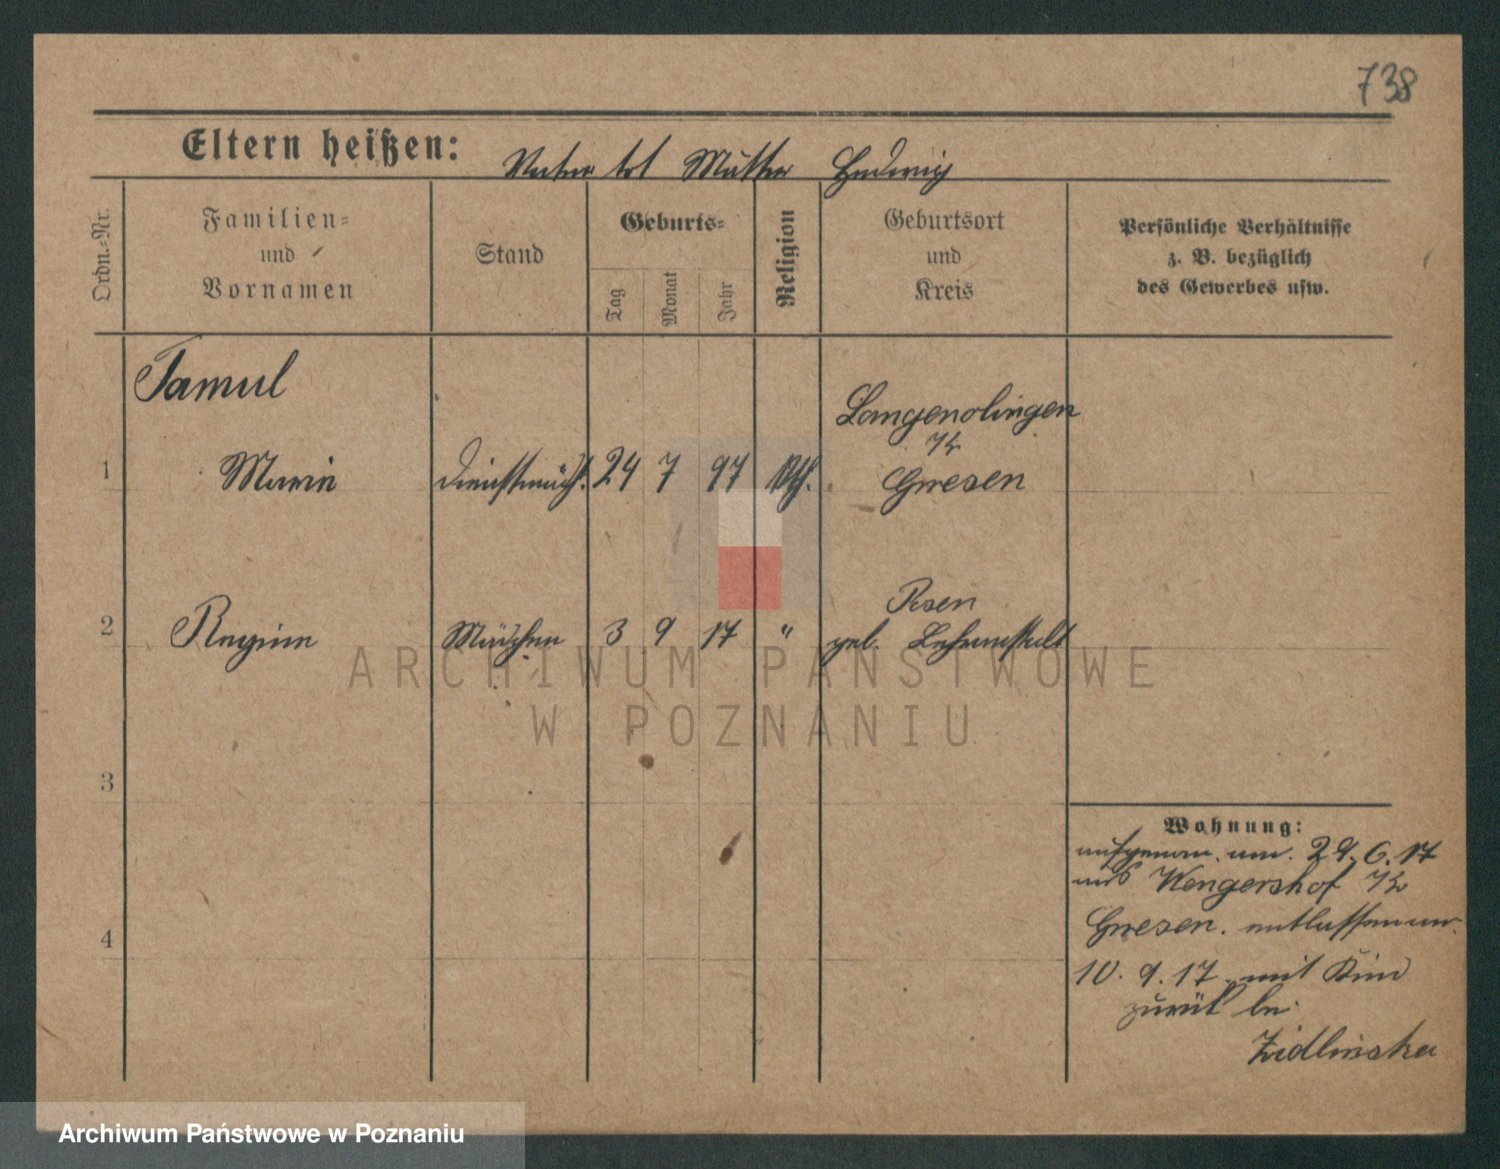 738
Eltern heißen: Vater tot Mutter Hedwig
Ordn.-Nr.
Familien-
und
Vornamen
Stand
Geburts-
Tag
Monat
Jahr
Religion
Geburtsort
und
Kreis
Persönliche Verhältnisse
z. B. bezüglich
des Gewerbes usw.
Tamul
Langenolingen
Kr
1 Marie Dienstmäch. 24 7 97 kth. Gnesen
Posen
2 Regine Mädchen 3 9 17 " geb. Lehranstalt
3
4
Wohnung:
aufgenom. am. 29. 6. 17
aus Wengershof Kr
Gnesen. entlassen am.
10. 9. 17. mit Kind
zurük bei
Zidlinska
ARCHIWUM PAŃSTWOWE
W POZNANIU
Archiwum Państwowe w Poznaniu